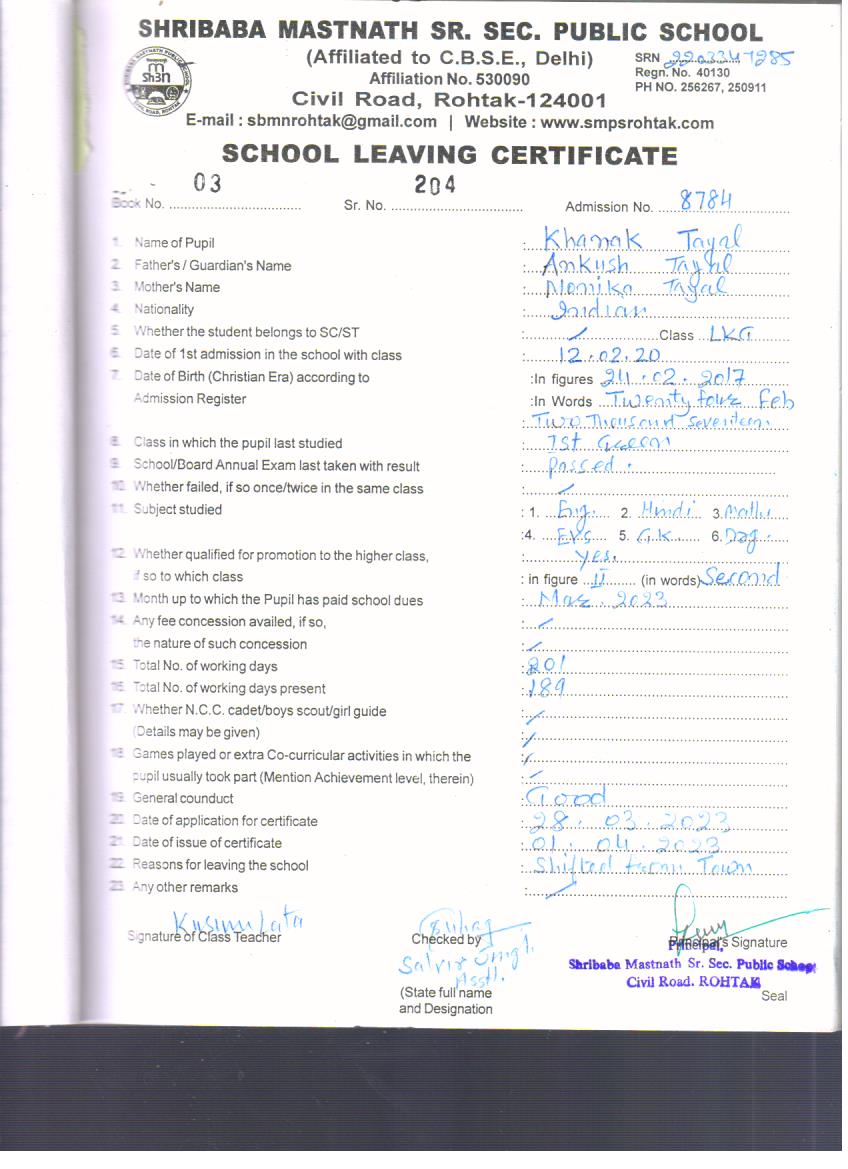 SHRIBABA MASTNATH SR. SEC. PUBLIC SCHOOL
(Affiliated to C.B.S.E., Delhi) SRN 2203347285
Affiliation No. 530090 Regn. No. 40130
Civil Road, Rohtak-124001 PH NO. 256267, 250911
E-mail : sbmnrohtak@gmail.com | Website : www.smpsrohtak.com
SCHOOL LEAVING CERTIFICATE
Book No. 03 Sr. No. 204 Admission No. 8784
1. Name of Pupil : Khanak Tayal
2. Father's / Guardian's Name : Ankush Tayal
3. Mother's Name : Monika Tayal
4. Nationality : Indian
5. Whether the student belongs to SC/ST : Class LKG
6. Date of 1st admission in the school with class : 12.02.20
7. Date of Birth (Christian Era) according to :In figures 24.02.2017
Admission Register :In Words Twenty four Feb
: Two Thousand seventeen
8. Class in which the pupil last studied : 1st
9. School/Board Annual Exam last taken with result : passed.
10. Whether failed, if so once/twice in the same class :
11. Subject studied : 1. Eng. 2. Hindi 3. Maths
:4. EVS 5. G.K. 6.
12. Whether qualified for promotion to the higher class, : yes.
if so to which class : in figure II (in words) Second
13. Month up to which the Pupil has paid school dues : Mar. 2023
14. Any fee concession availed, if so, :
the nature of such concession :
15. Total No. of working days : 201
16. Total No. of working days present : 189
17. Whether N.C.C. cadet/boys scout/girl guide :
(Details may be given) :
18. Games played or extra Co-curricular activities in which the :
pupil usually took part (Mention Achievement level, therein) :
19. General counduct : Good
20. Date of application for certificate : 28.03.2023
21. Date of issue of certificate : 01.04.2023
22. Reasons for leaving the school : Shifted Town
23. Any other remarks :
Kusum Lata
Signature of Class Teacher Checked by Principal's Signature
Principal,
Singh Shribaba Mastnath Sr. Sec. Public School
Asstt. Civil Road. ROHTAK
(State full name Seal
and Designation